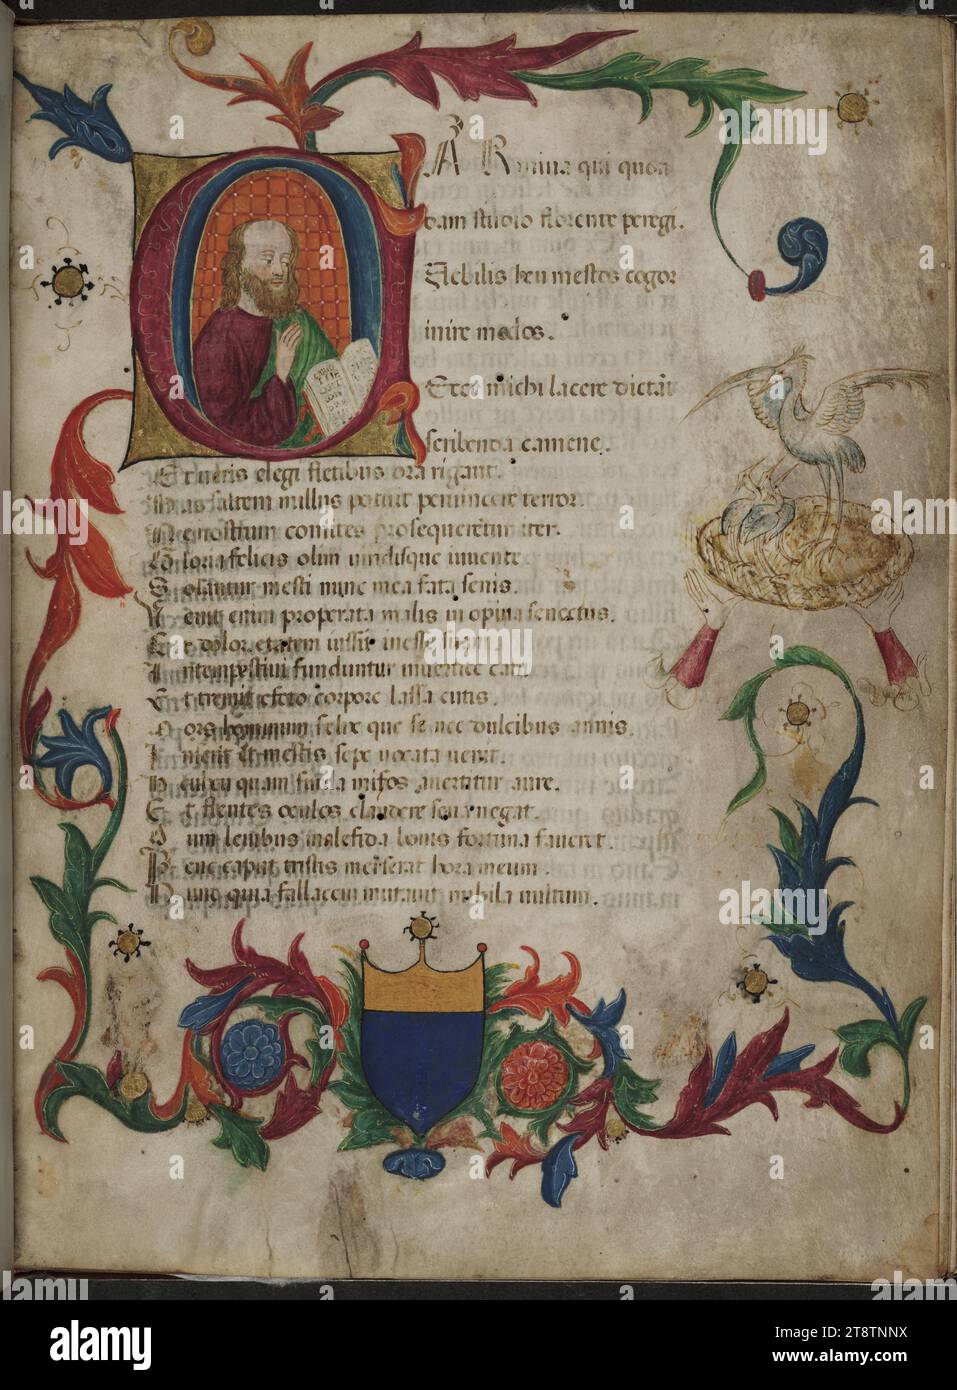 CARmina qui quon
dam studio florente peregi.
Flebilis heu mestos cogor
inire modos.
Ecce michi lacere dictāt
scribenda camene.
Et ueris elegi fletibus ora rigant.
Has saltem nullus potuit peruincere terror
Ne nostrum comites prosequerētur iter.
Gloria felicis olim uiridisque iuuente
Solantur mesti nunc mea fata senis.
Uenit enim properata malis inopina senectus.
Et dolor etatem iussit inesse suam
Intempestiui funduntur uertice cani.
Et tremit efeto corpore lassa cutis.
Mors hominum felix que se nec dulcibus annis.
Inserit et mestis sepe uocata uenit.
Heu heu quam surda miseros auertitur aure.
Et flentes oculos claudere seua negat.
Dum leuibus malefida bonis fortuna faueret.
Pene caput tristis merserat hora meum.
Nunc quia fallacem mutauit nubila uultum.
alamy
Image ID: 2T8TNNX
www.alamy.com